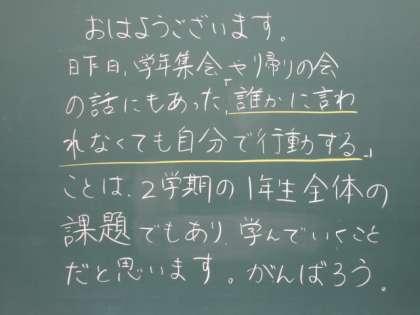 おはようございます。
昨日、学年集会や帰りの会
の話にもあった、「誰かに言わ
れなくても自分で行動する」
ことは、2学期の1年生全体の
課題でもあり、学んでいくこと
だと思います。がんばろう。